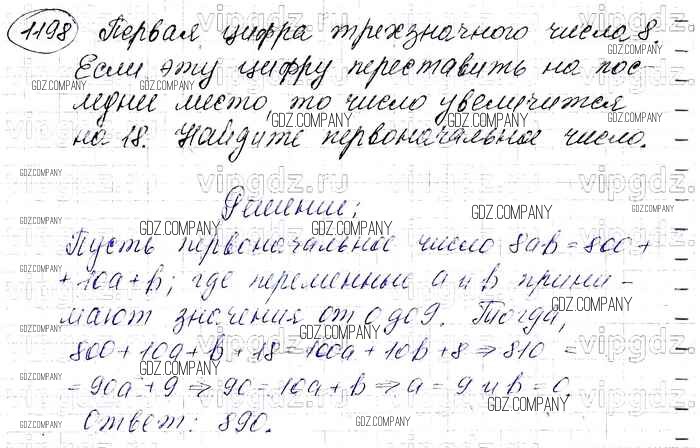 1198 Первая цифра трехзначного числа 8.
Если эту цифру переставить на пос-
леднее место, то число увеличится
на 18. Найдите первоначальное число.
Решение:
Пусть первоначальное число 8ab = 800 +
+ 10a + b; где переменные a и b прини-
мают значения от 0 до 9. Тогда,
800 + 10a + b + 18 = 100a + 10b + 8 ⇒ 810 =
= 90a + 9 ⇒ 90 = 10a + b ⇒ a = 9 и b = 0
Ответ: 890.